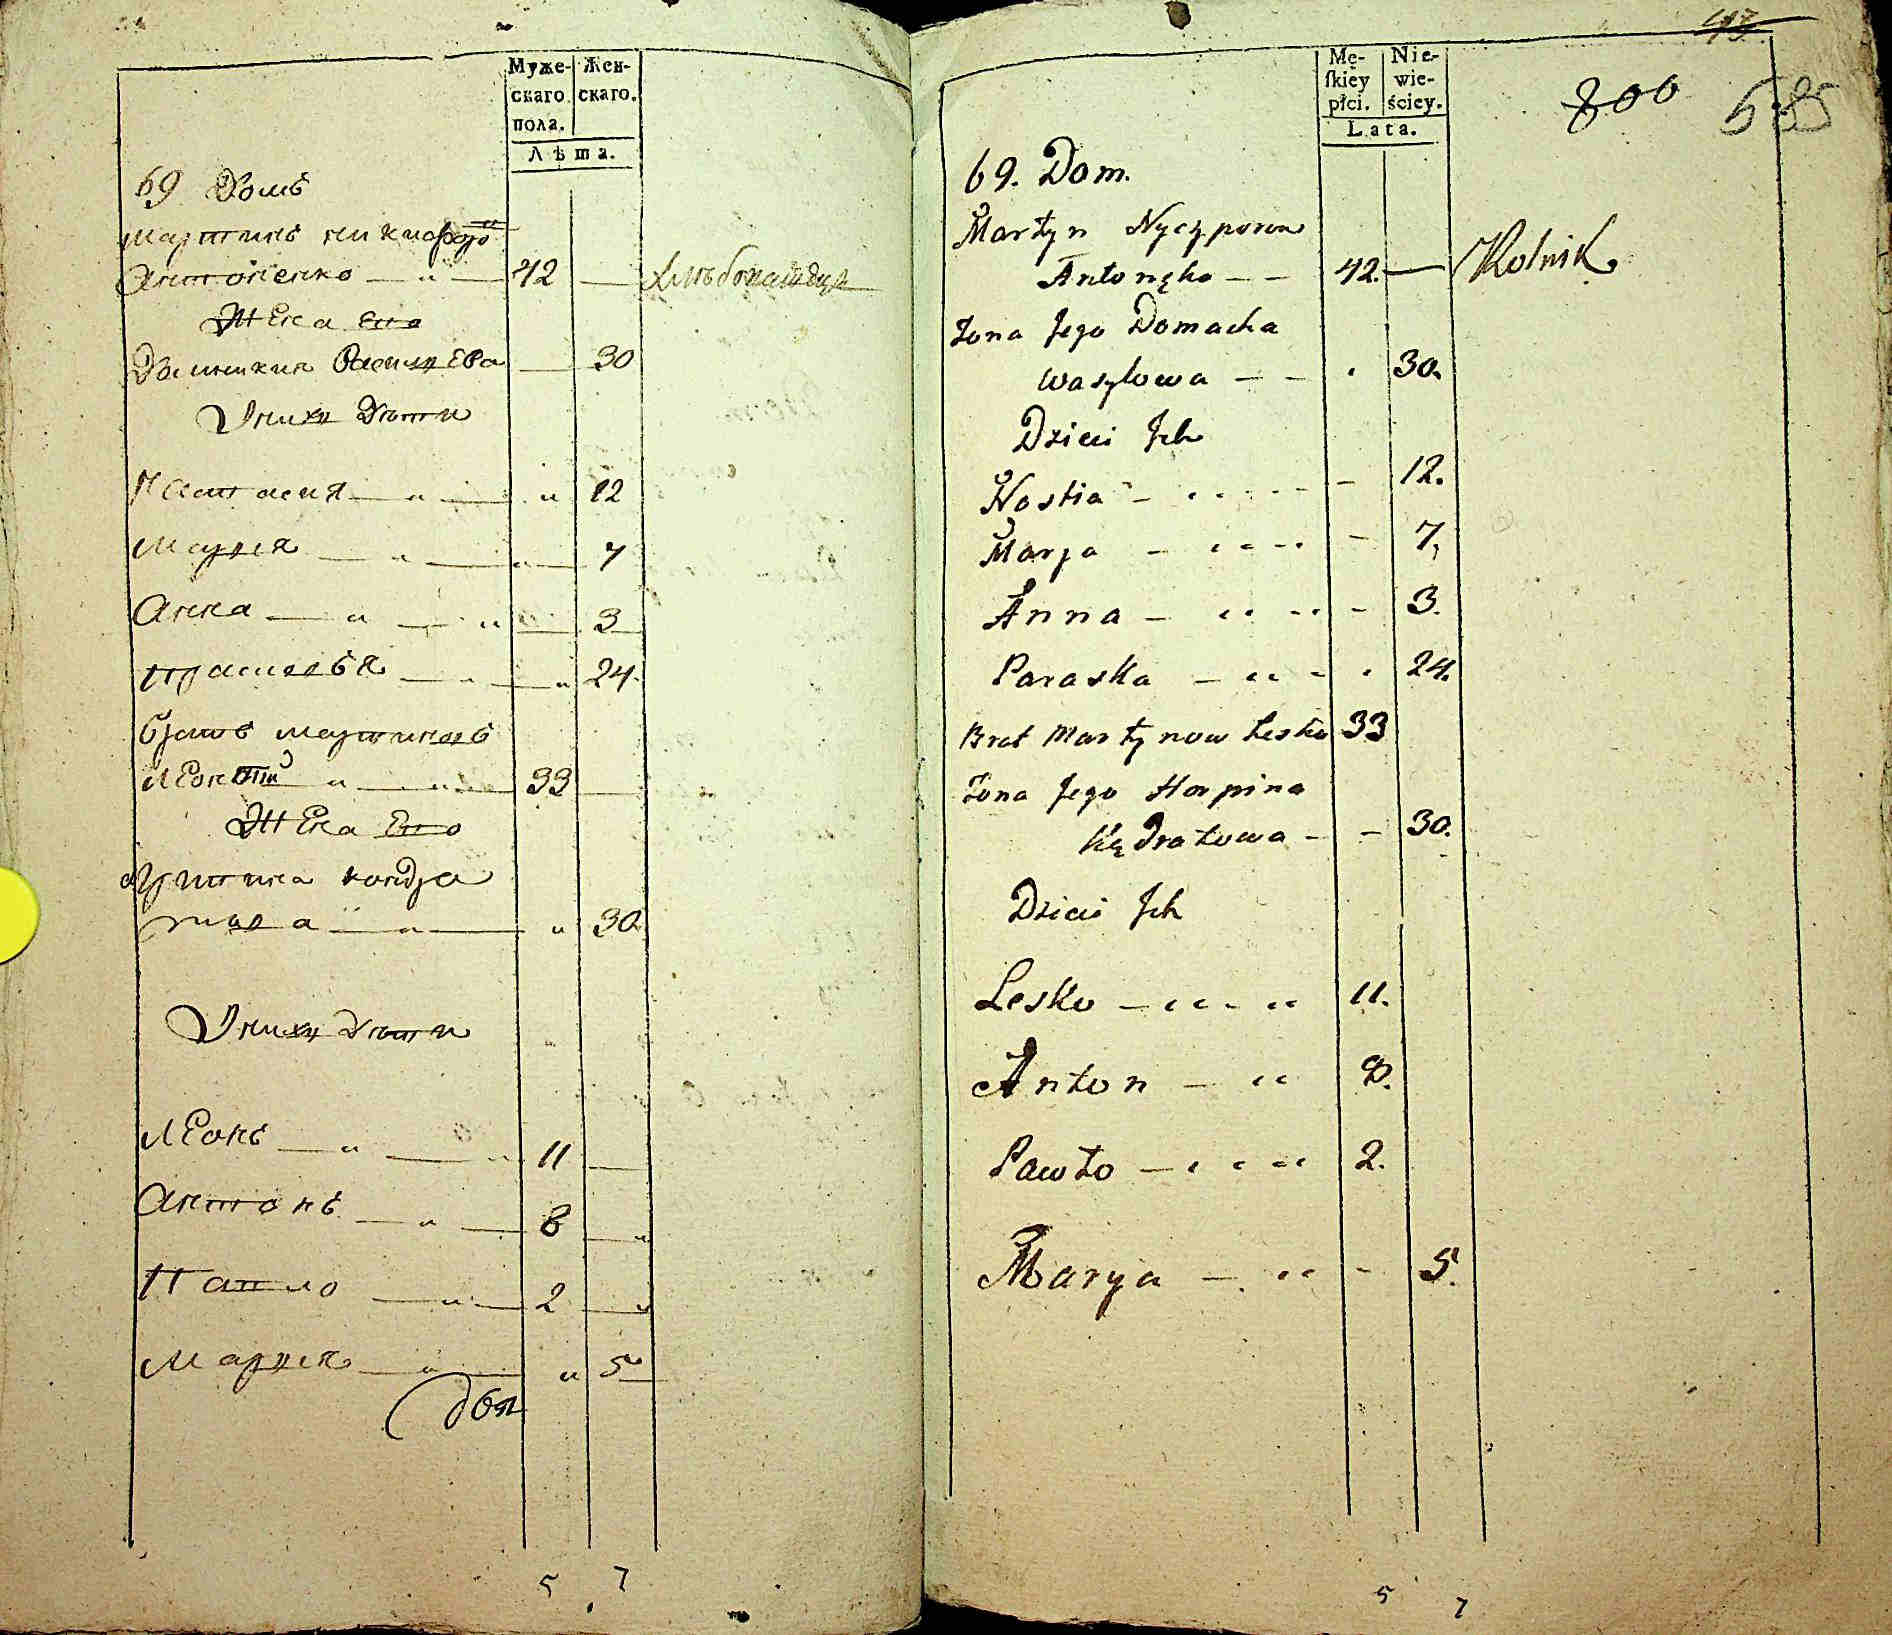 Муже-
скаго
пола.
Жен-
скаго.
Лѣта.
69 Домъ
Мартинъ Никифоро
Антоненко — „ — 42 — Хлѣбопашецъ
Жена Его
Домникия Василѣва — 30
У них Дѣти
Настасия — „ — „ 12
Мария — „ — „ — 7
Анна — „ — „ — 3
Прасковья — „ — „ 24.
Братъ Мартиновъ
Леонтий „ — „ — 33 —
Жена Его
Угрипина Кондра
това — „ — „ 30.
У них Дѣти
Леонъ — „ — „ 11 —
Антонъ — „ — 8 — „
Павло — „ — 2 — „
Мария — „ — „ 5
два
5 7
43
Mę-
ſkiéy
płci.
Nie-
wie-
ściey.
Lata.
800 585
69. Dom.
Martyn Nyczyporow
Antonęko — — 42. — Rolnik
Żona Jego Domacha
Wasylowa — — . 30.
Dzieci Jch
Nastia — . . . — — 12.
Marja — . . — . — 7.
Anna — . . — — 3.
Paraska — . . — . 24.
Brat Martynow Lesko 33
Żona Jego Horpina
Kędratowa — — 30.
Dzieci Jch
Lesko — . . — . . 11.
Anton — . . 8.
Pawło — . . . . 2.
Marya — . . — 5.
5 7